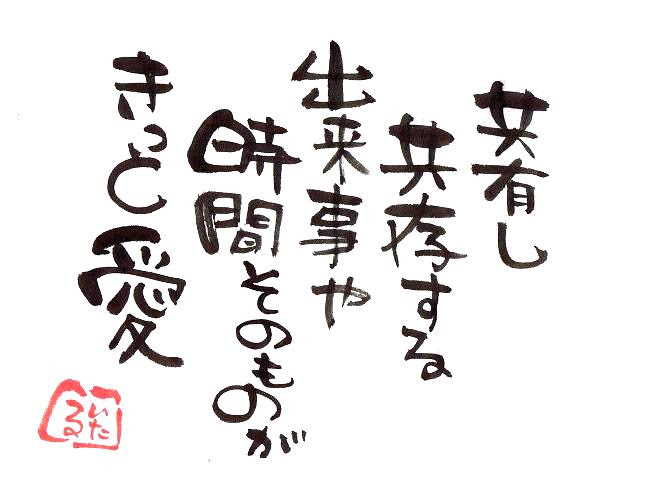 共有し
共存する
出来事や
時間そのものが
きっと愛
いたる